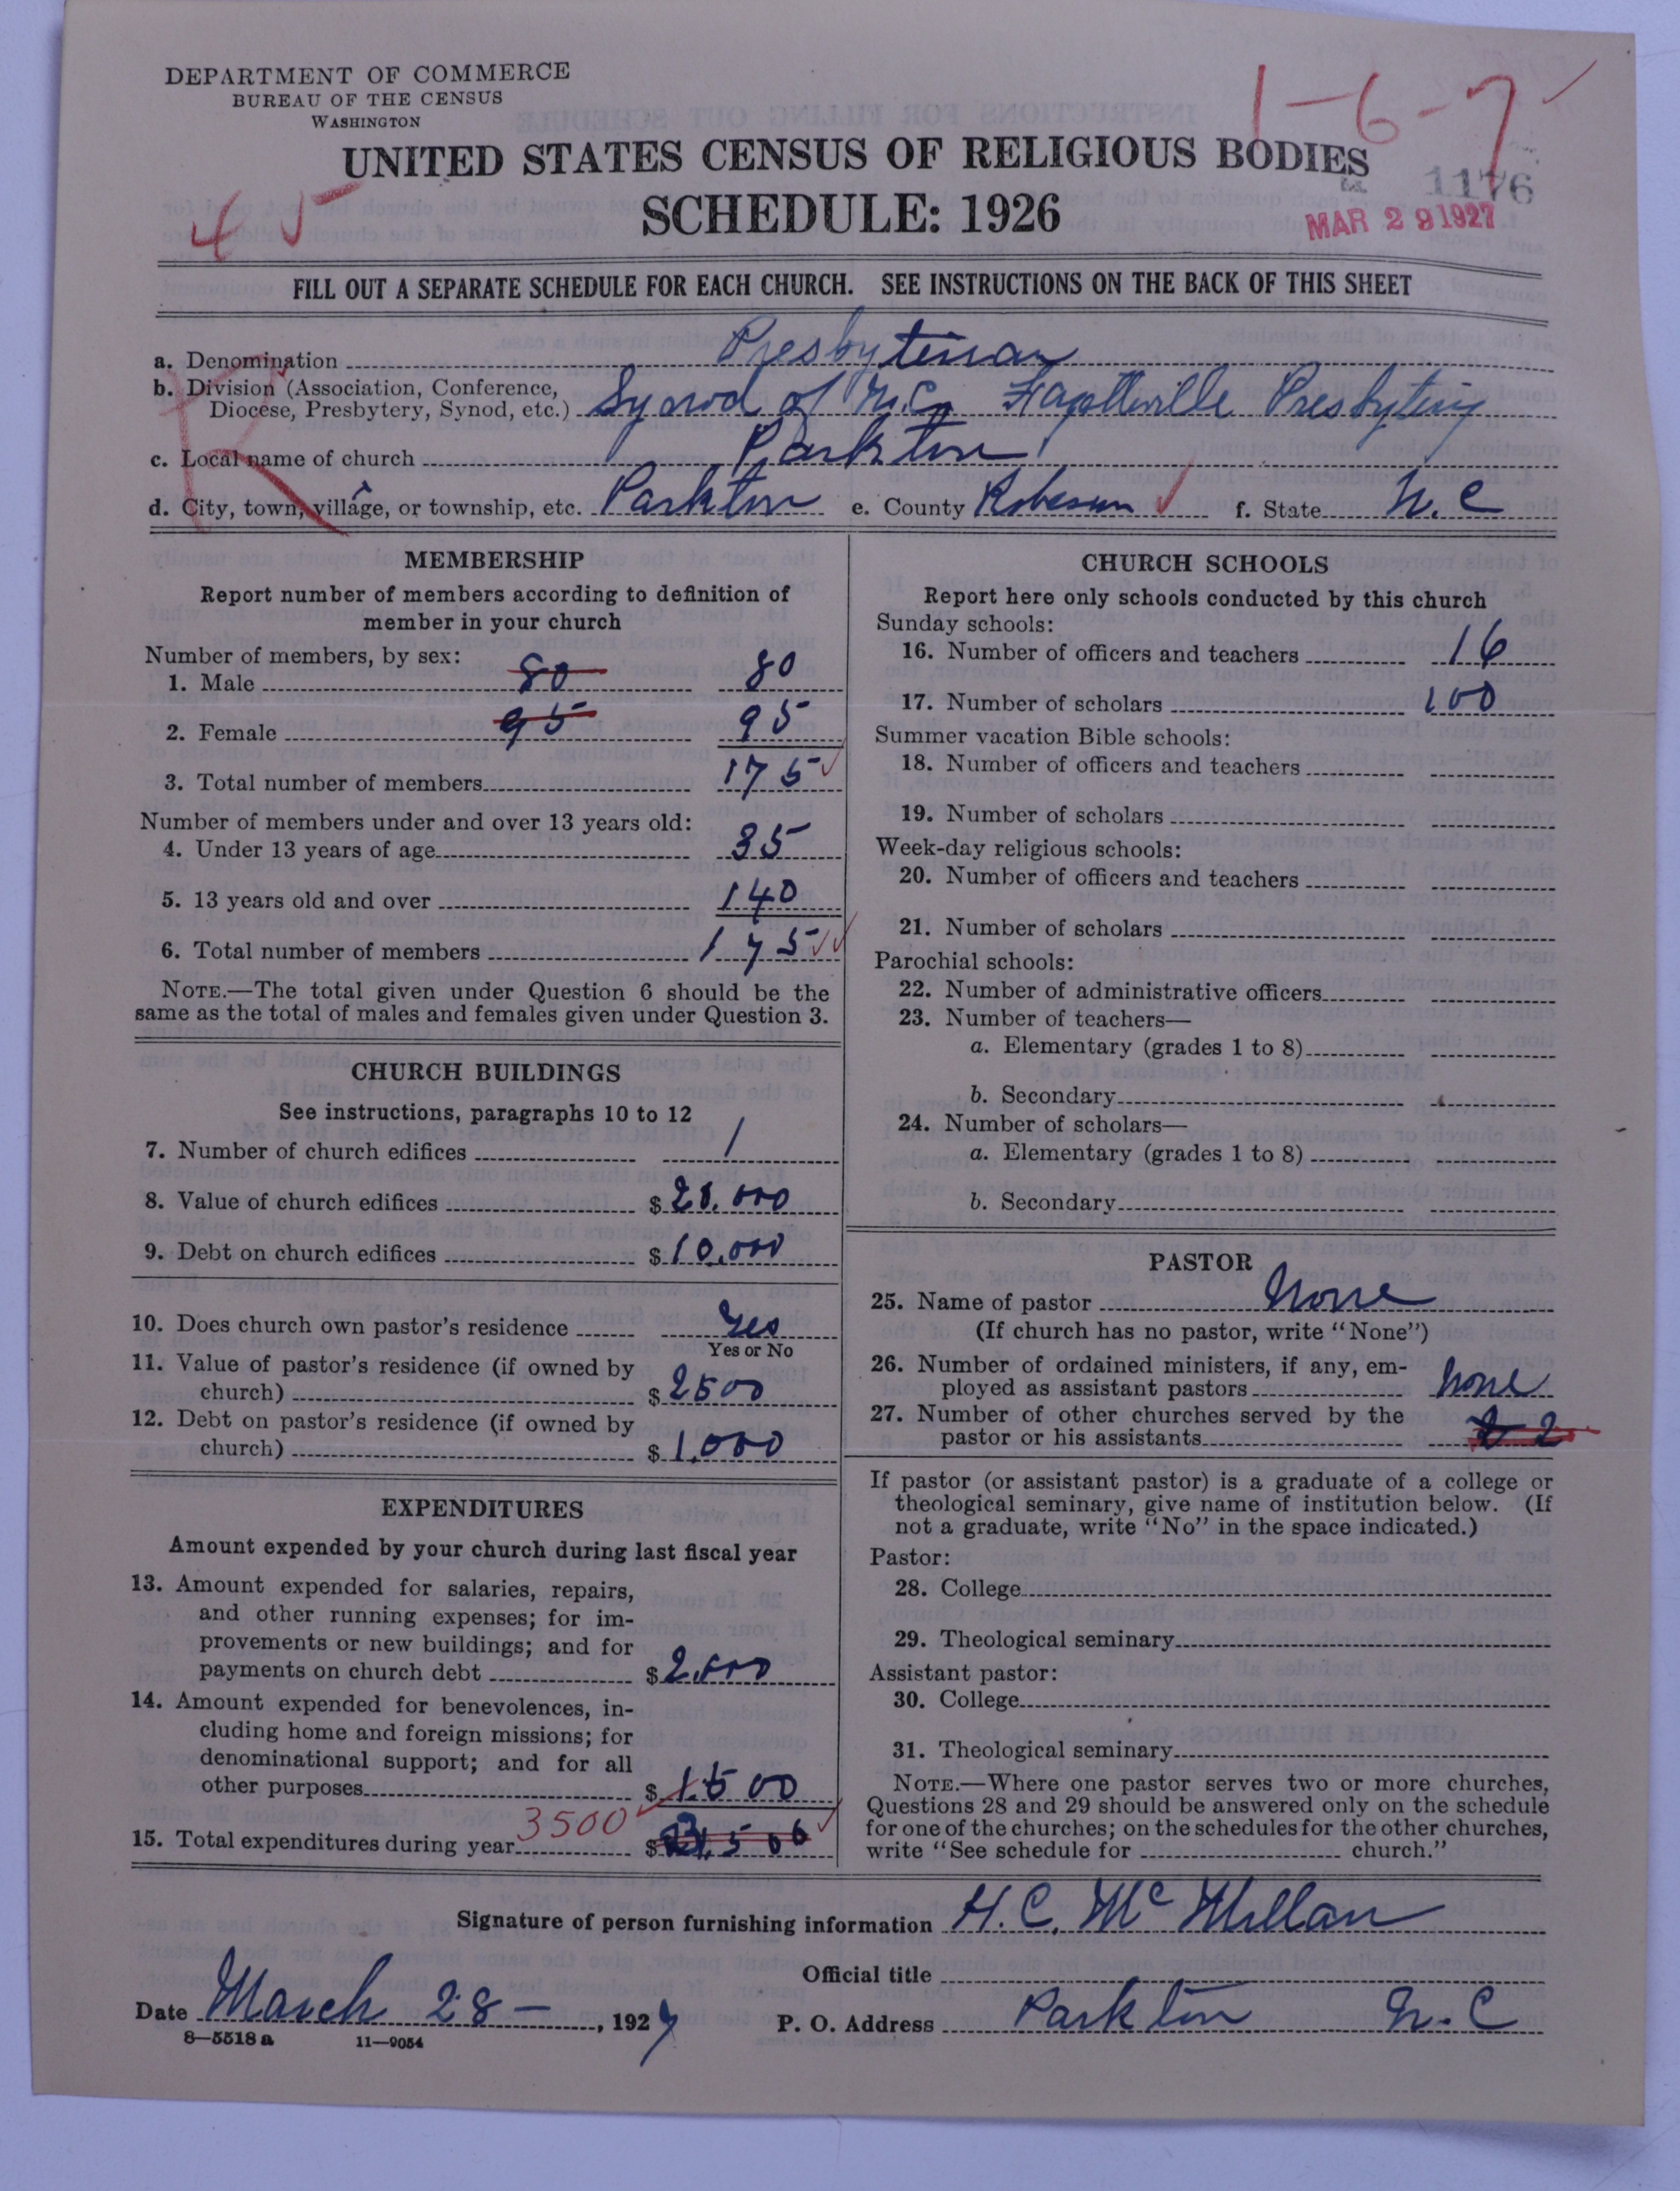 DEPARTMENT OF COMMERCE
BUREAU OF THE CENSUS
WASHINGTON
1-6-7
UNITED STATES CENSUS OF RELIGIOUS BODIES
1176
45
SCHEDULE: 1926
MAR 29 1927
FILL OUT A SEPARATE SCHEDULE FOR EACH CHURCH. SEE INSTRUCTIONS ON THE BACK OF THIS SHEET
a. Denomination Presbyterian
b. Division (Association, Conference,
Diocese, Presbytery, Synod, etc.) Synod of N.C.
c. Local name of church Parkton
d. City, town, village, or township, etc. Parkton e. County Robeson f. State N.C
MEMBERSHIP
Report number of members according to definition of
member in your church
Number of members, by sex:
1. Male 80 80
2. Female 95 95
3. Total number of members 175
Number of members under and over 13 years old:
4. Under 13 years of age 35
5. 13 years old and over 140
6. Total number of members 175
NOTE.—The total given under Question 6 should be the
same as the total of males and females given under Question 3.
CHURCH BUILDINGS
See instructions, paragraphs 10 to 12
7. Number of church edifices 1
8. Value of church edifices $
9. Debt on church edifices $10,000
10. Does church own pastor's residence Yes
Yes or No
11. Value of pastor's residence (if owned by
church) $2500
12. Debt on pastor's residence (if owned by
church) $1,000
EXPENDITURES
Amount expended by your church during last fiscal year
13. Amount expended for salaries, repairs,
and other running expenses; for im-
provements or new buildings; and for
payments on church debt $2,000
14. Amount expended for benevolences, in-
cluding home and foreign missions; for
denominational support; and for all
other purposes $1500
3500
15. Total expenditures during year $
CHURCH SCHOOLS
Report here only schools conducted by this church
Sunday schools:
16. Number of officers and teachers 16
17. Number of scholars 100
Summer vacation Bible schools:
18. Number of officers and teachers
19. Number of scholars
Week-day religious schools:
20. Number of officers and teachers
21. Number of scholars
Parochial schools:
22. Number of administrative officers
23. Number of teachers—
a. Elementary (grades 1 to 8)
b. Secondary
24. Number of scholars—
a. Elementary (grades 1 to 8)
b. Secondary
PASTOR
25. Name of pastor None
(If church has no pastor, write "None")
26. Number of ordained ministers, if any, em-
ployed as assistant pastors None
27. Number of other churches served by the
pastor or his assistants 2
If pastor (or assistant pastor) is a graduate of a college or
theological seminary, give name of institution below. (If
not a graduate, write "No" in the space indicated.)
Pastor:
28. College
29. Theological seminary
Assistant pastor:
30. College
31. Theological seminary
NOTE.—Where one pastor serves two or more churches,
Questions 28 and 29 should be answered only on the schedule
for one of the churches; on the schedules for the other churches,
write "See schedule for church."
Signature of person furnishing information H. C. McMillan
Official title
Date March 28 —, 1927 P. O. Address Parkton N.C
8—5518 a 11—9054